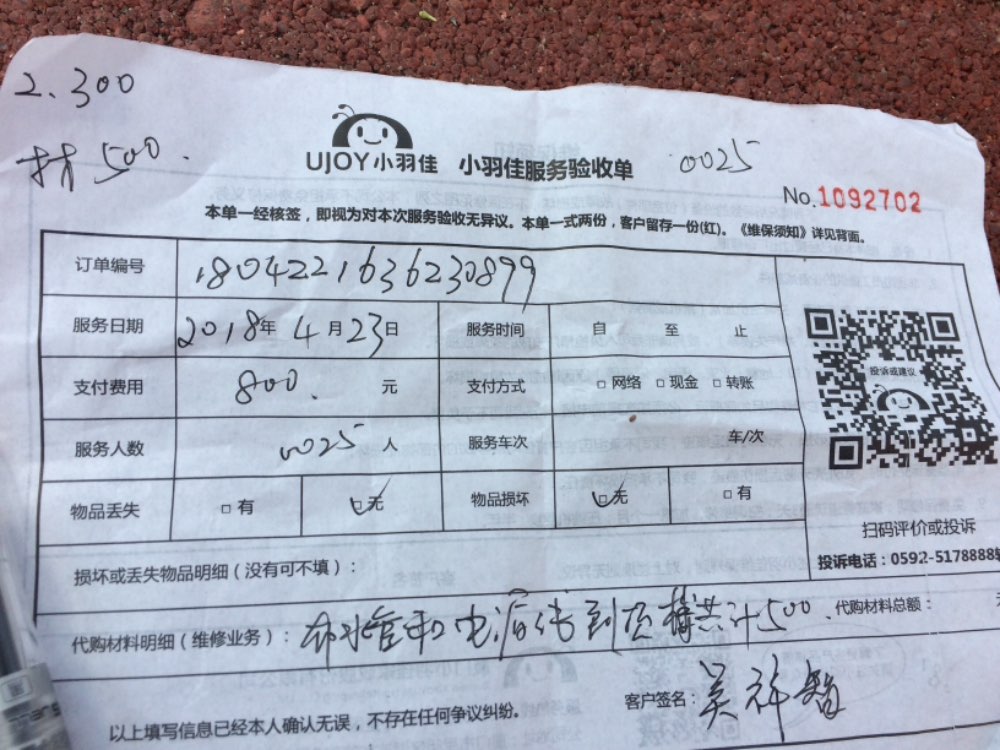 2.300
材500.
UJOY小羽佳 小羽佳服务验收单 0025
No.1092702
本单一经核签，即视为对本次服务验收无异议。本单一式两份，客户留存一份(红)。《维保须知》详见背面。
订单编号 1804221636230899
服务日期 2018年4月23日 服务时间 自 至 止
支付费用 800. 元 支付方式 □网络 □现金 □转账
投诉或建议
服务人数 0025 人 服务车次 车/次
物品丢失 □有 □无 物品损坏 □无 □有
扫码评价或投诉
投诉电话：0592-5178888
损坏或丢失物品明细（没有可不填）：
代购材料明细（维修业务）：布水管和电源线到顶楼共计500. 代购材料总额：
客户签名：吴祥智
以上填写信息已经本人确认无误，不存在任何争议纠纷。